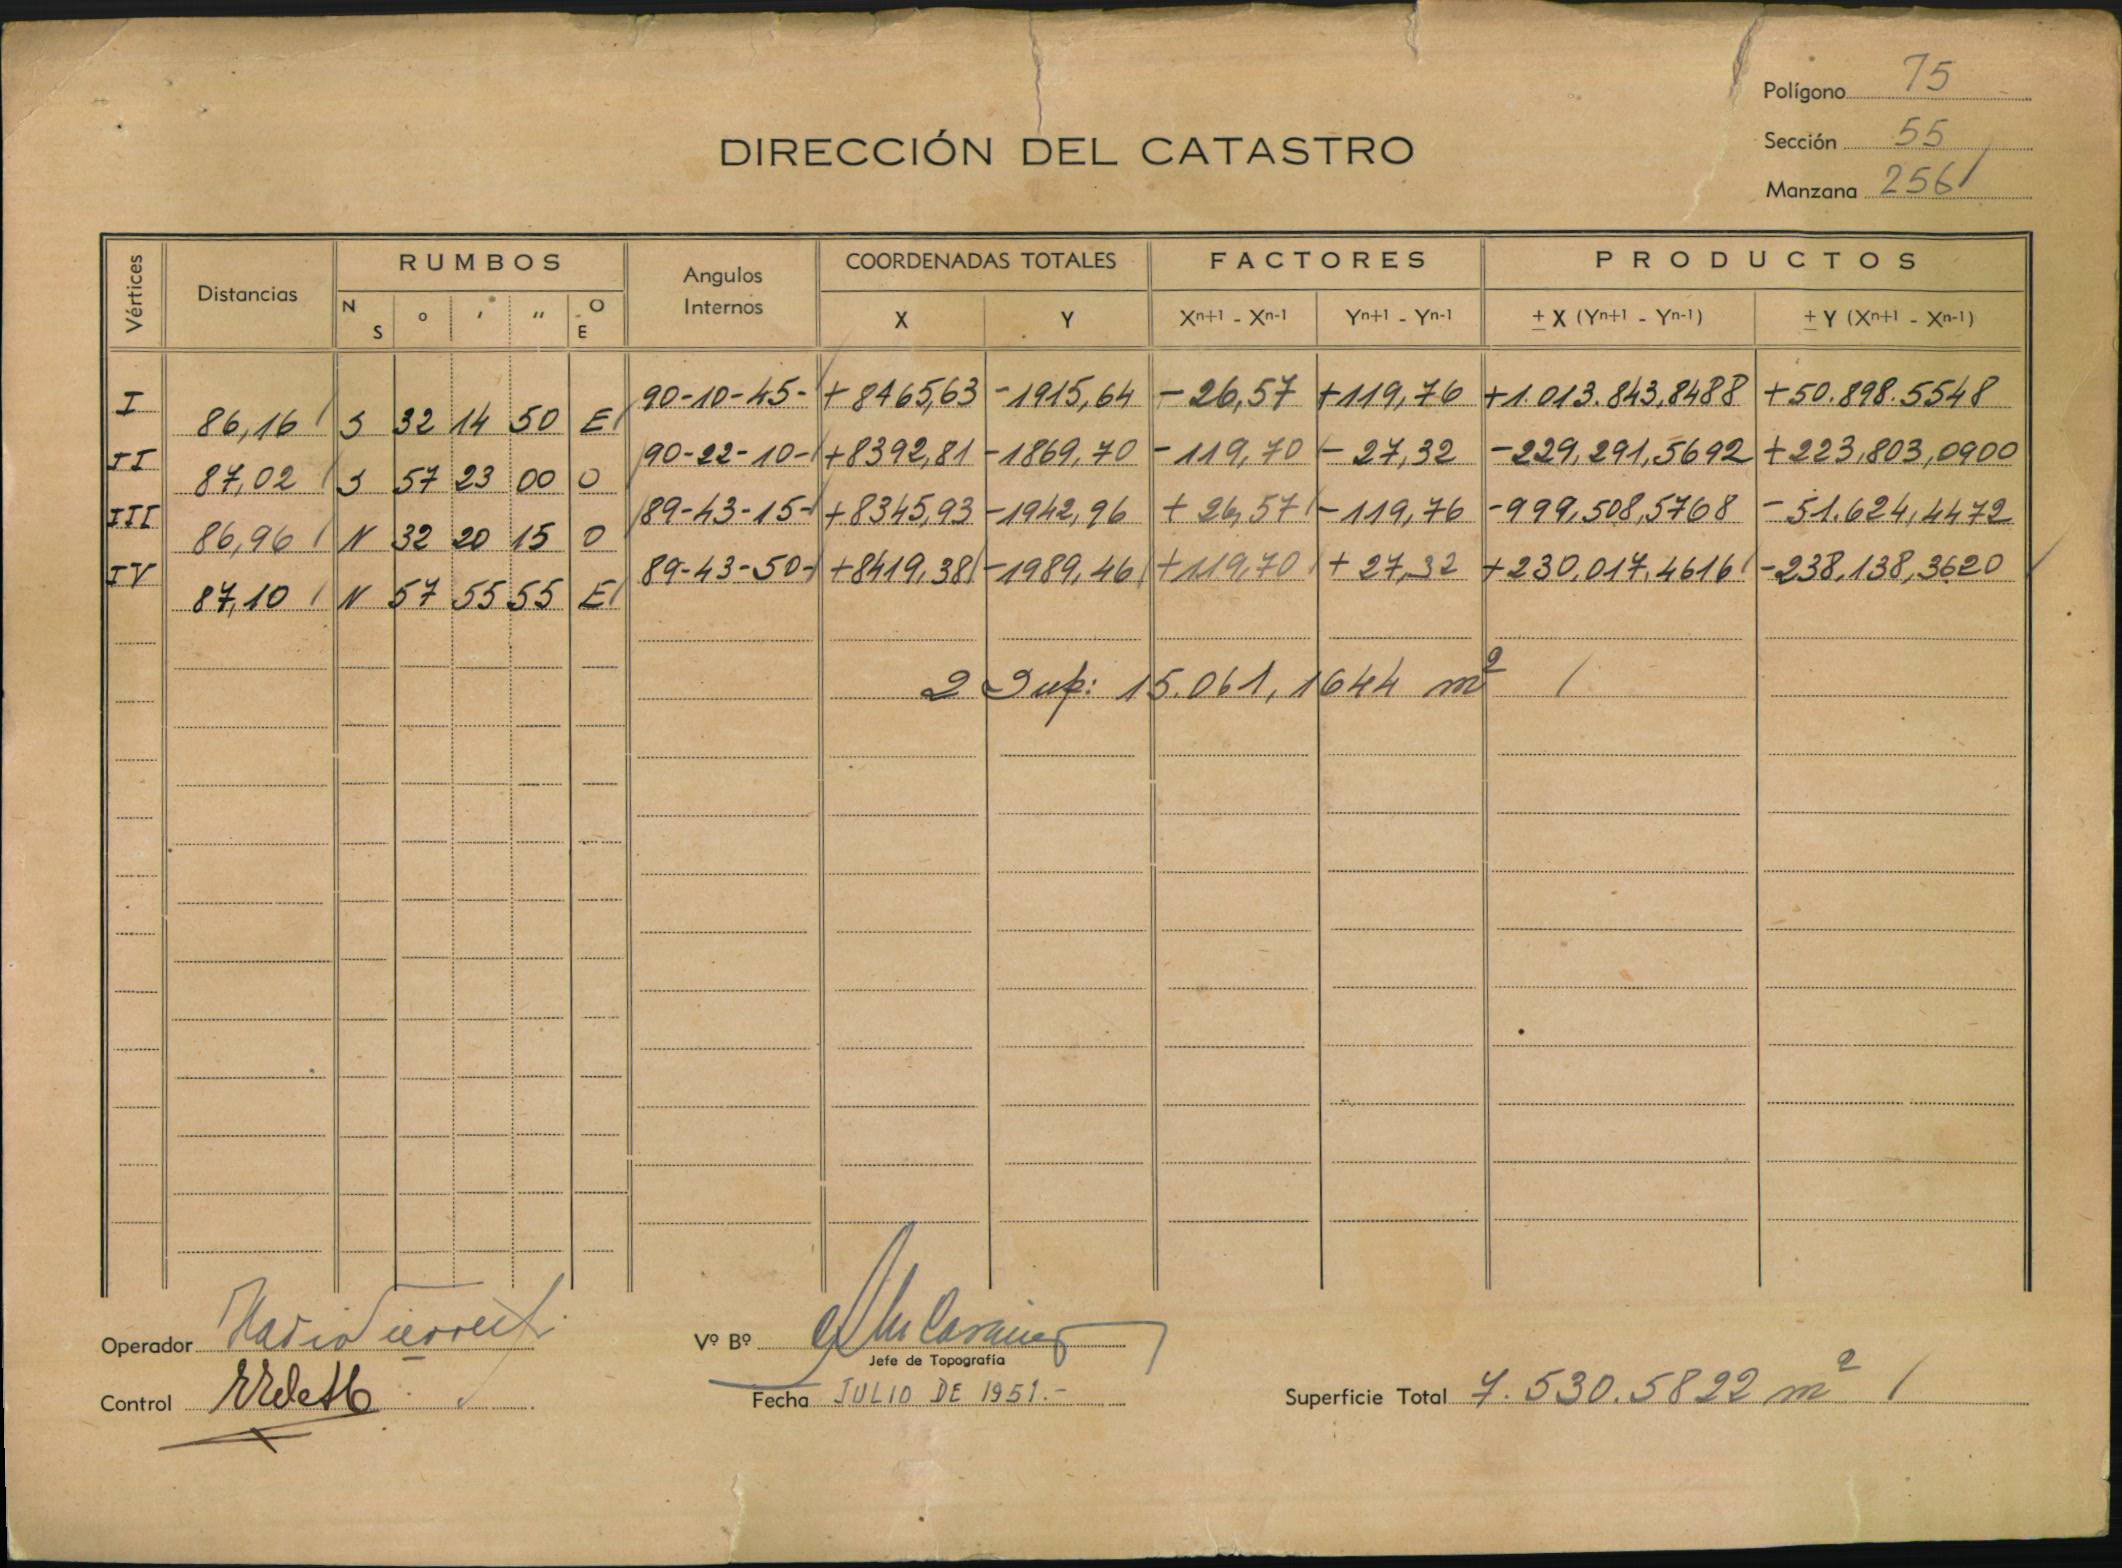 Polígono 75
DIRECCIÓN DEL CATASTRO
Sección 55
Manzana 256
Vértices Distancias RUMBOS Angulos Internos COORDENADAS TOTALES FACTORES PRODUCTOS
N S ° ' '' O E X Y Xn+1 - Xn-1 Yn+1 - Yn-1 ± X (Yn+1 - Yn-1) ± Y (Xn+1 - Xn-1)
I 90-10-45- +8465,63 -1915,64 -26,57 +119,76 +1.013.843,8488 +50.898.5548
86,16 S 32 14 50 E
II 90-22-10- +8392,81 -1869,70 -119,70 -27,32 -229,291,5692 +223,803,0900
87,02 S 57 23 00 O
III 89-43-15- +8345,93 -1942,96 +26,57 -119,76 -999,508,5768 -51.624,4472
86,96 N 32 20 15 O
IV 89-43-50- +8419,38 -1989,46 +119,70 +27,32 +230,017,4616 -238,138,3620
87,10 N 57 55 55 E
2 Sup: 15.061,1644 m²
Operador
Vº Bº
Jefe de Topografía
Control
Fecha JULIO DE 1951.-
Superficie Total 7.530.5822 m²